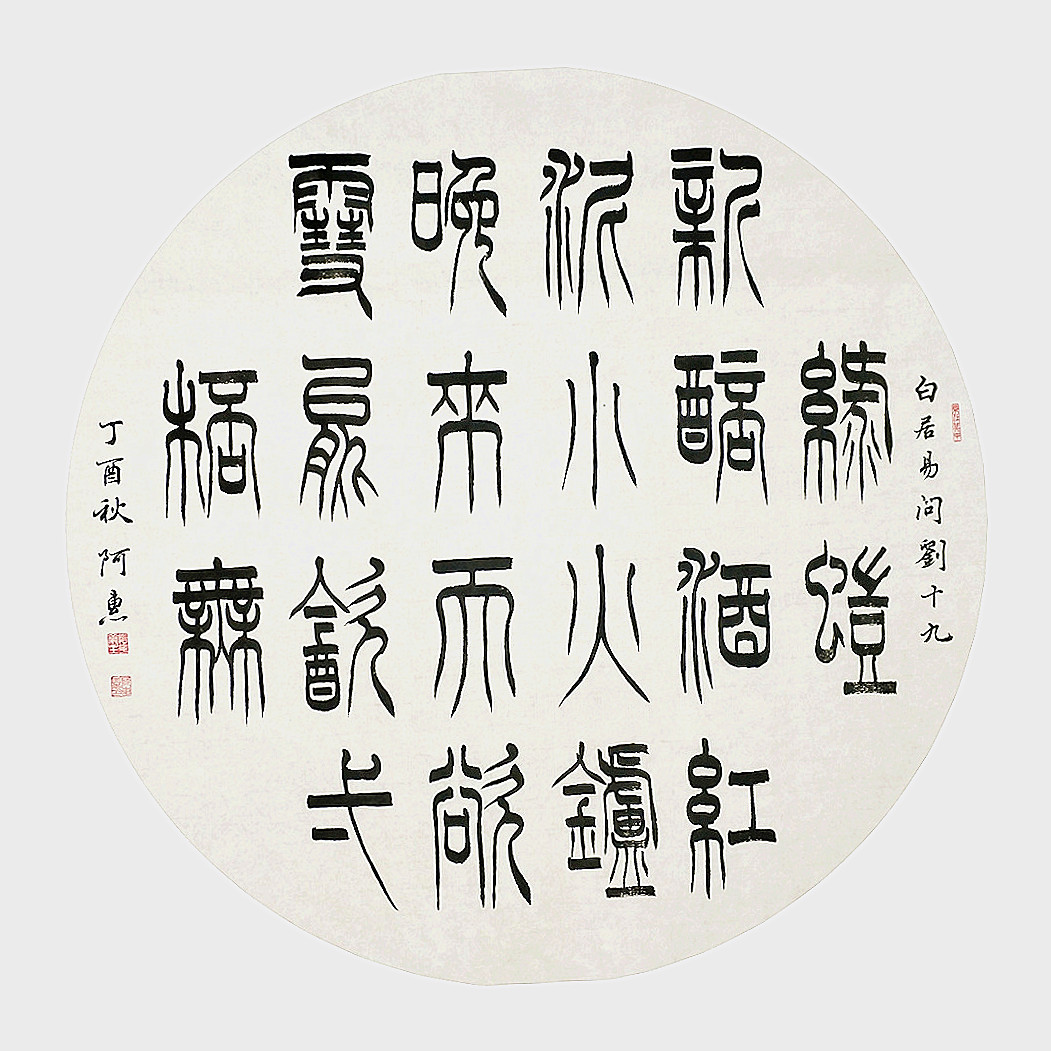 白居易问劉十九
綠螘
新醅酒紅
泥小火鑪
晚來天欲
雪能飲弌
桮無
丁酉秋阿惠